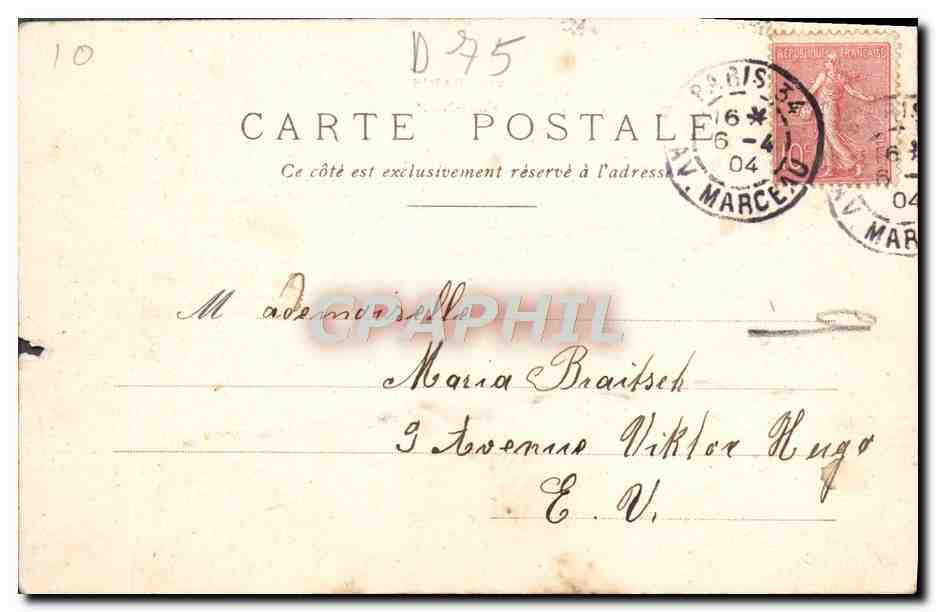 10
D 75
RÉPUBLIQUE FRANÇAISE
CARTE POSTALE
Ce côté est exclusivement réservé à l'adresse
PARIS 34
6 *
6 - 4
04
AV. MARCEAU
6 *
04
AV. MAR
Mademoiselle
CPAPHIL
Maria Braitsch
9 Avenue Viktor Hugo
E. V.